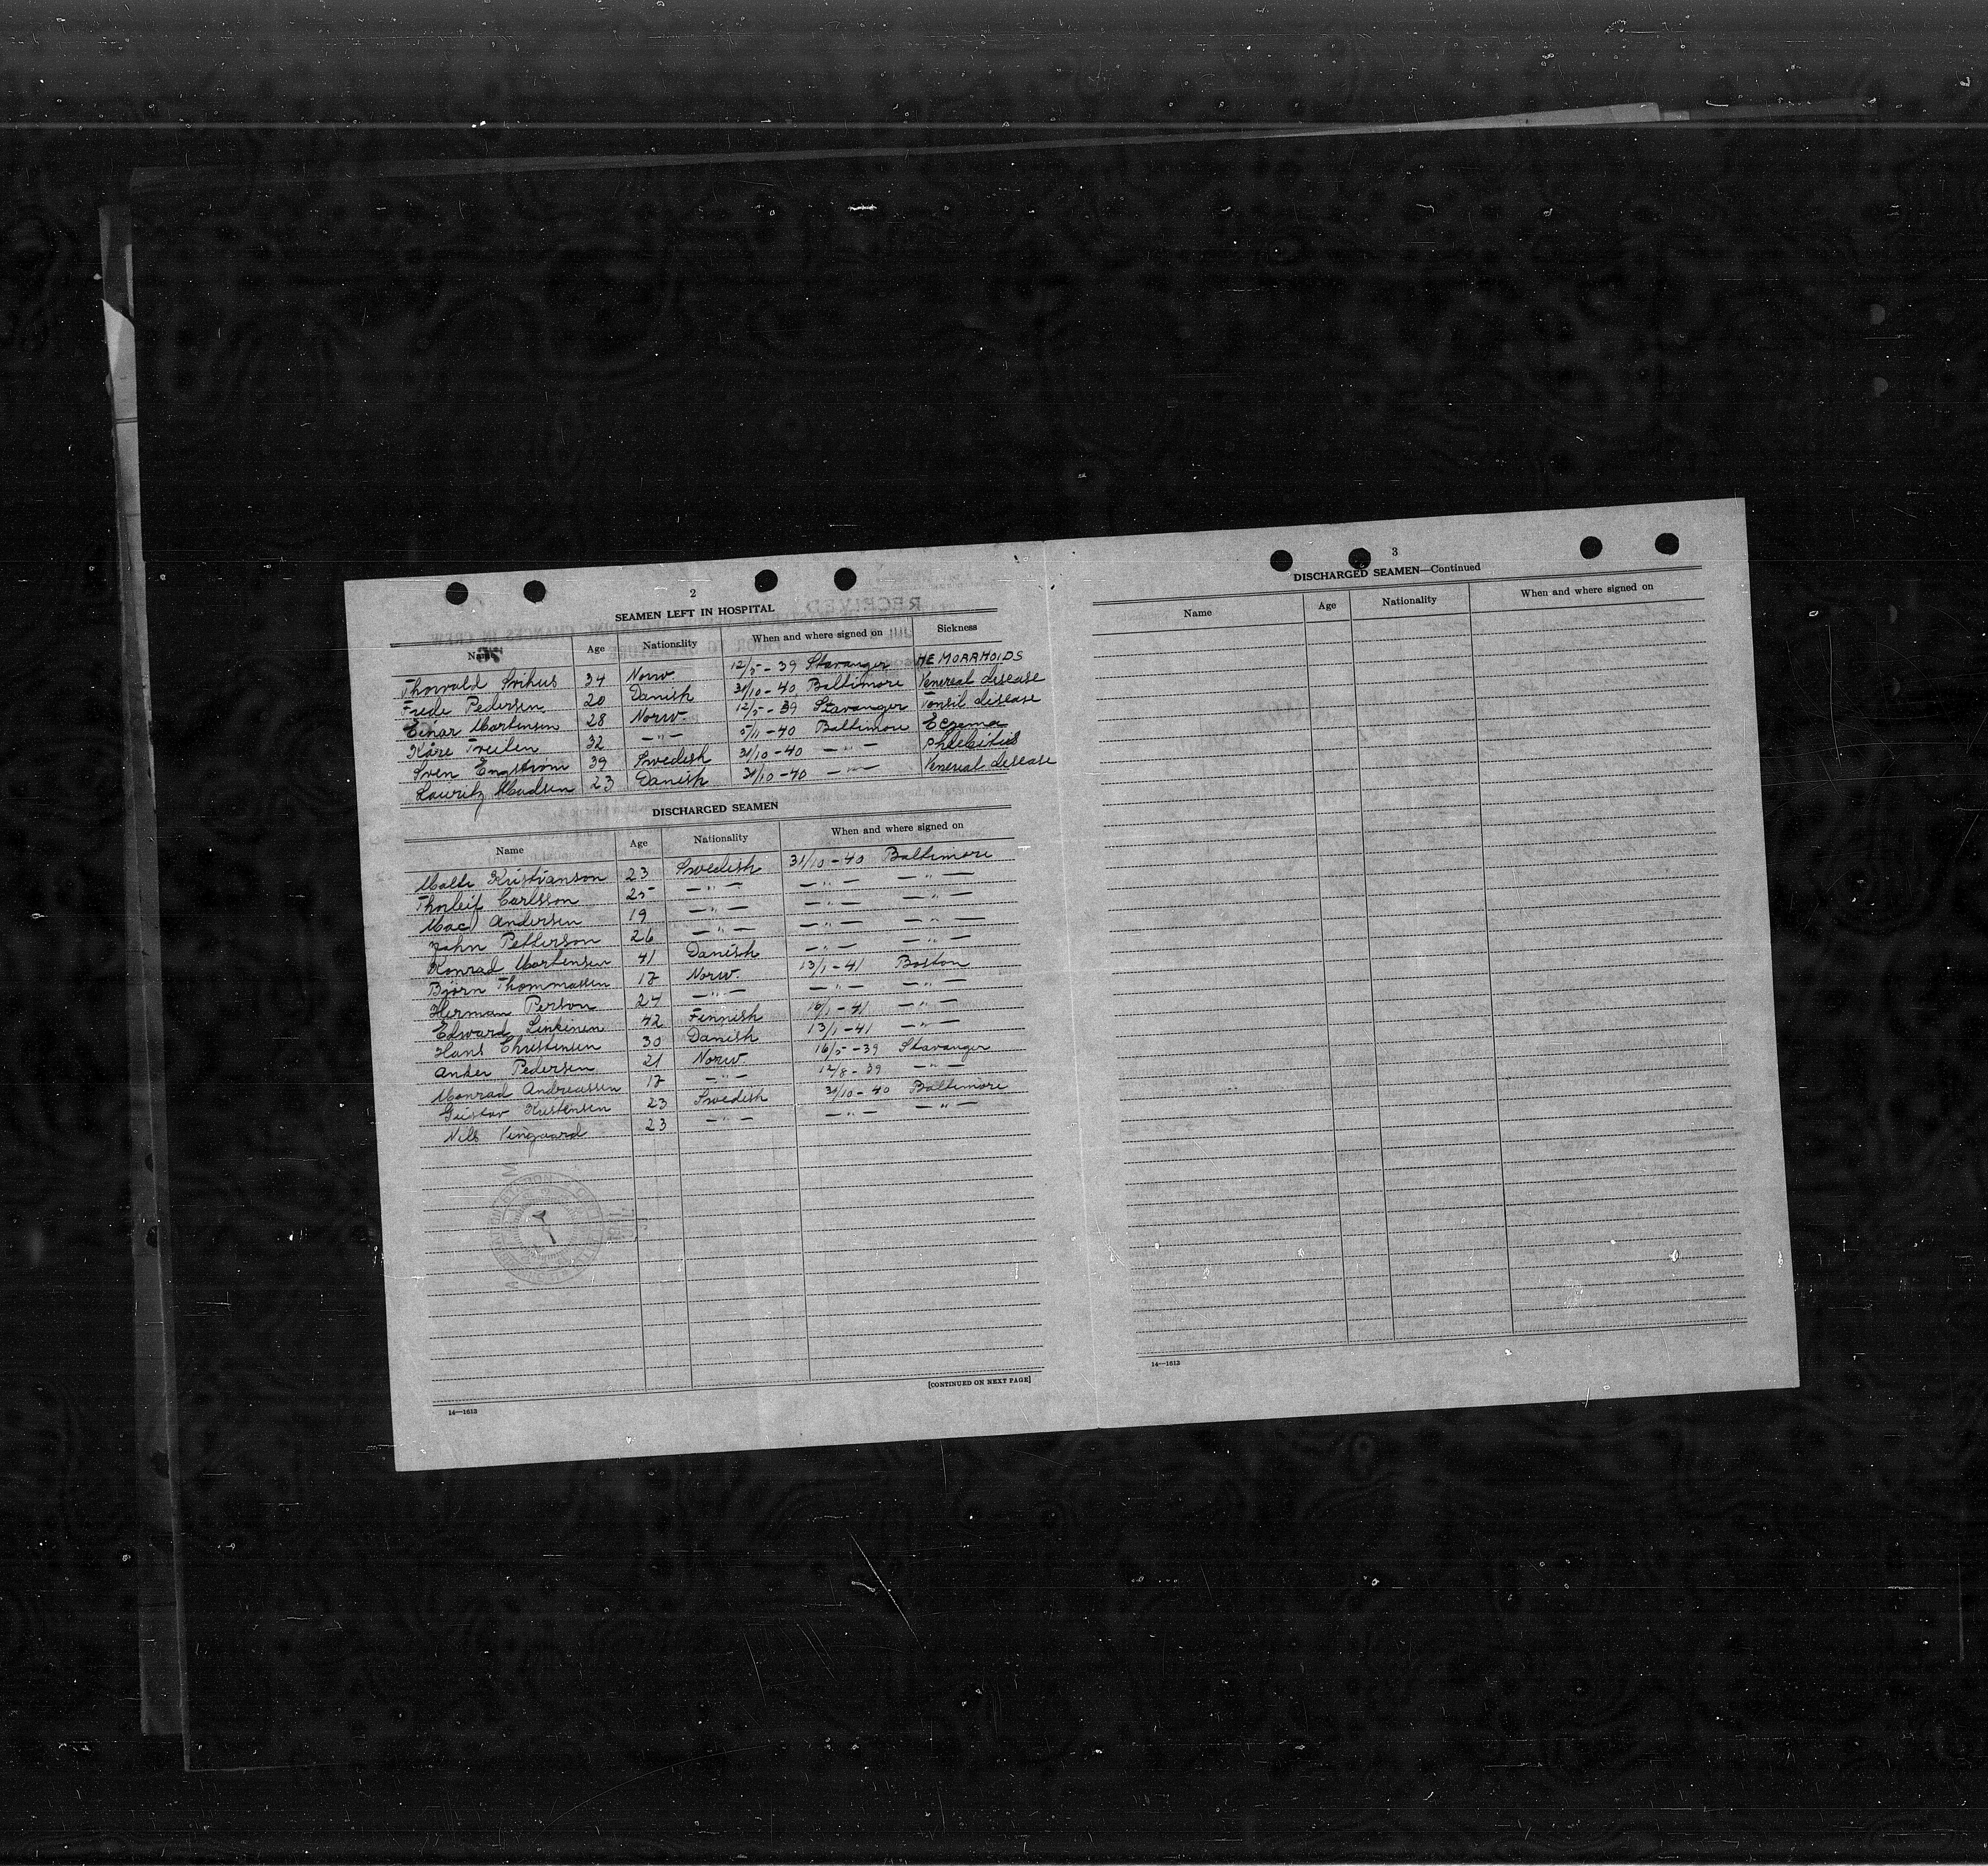 2
SEAMEN LEFT IN HOSPITAL
Name Age Nationality When and where signed on Sickness
Thorvald 34 Norw 12/5-39 Stavanger HEMORRHOIDS
Frede Pedersen 20 Danish 31/10-40 Baltimore Venereal disease
Einar Mortensen 28 Norw. 12/5-39 Stavanger Tonsil disease
Kåre Treiten 32 —"— 5/11-40 Baltimore Eczema
Sven Engström 39 Swedish 31/10-40 —"— Phlebitis
Lauritz Madsen 23 Danish 31/10-40 —"— Venereal disease
DISCHARGED SEAMEN
Name Age Nationality When and where signed on
Malte Kristianson 23 Swedish 31/10-40 Baltimore
Thorleif Carlsson 25 —"— —"— —"—
Mac Andersen 19 —"— —"— —"—
John Petterson 26 —"— —"— —"—
Konrad Mortensen 41 Danish —"— —"—
Bjørn Thommassen 17 Norw. 13/1-41 Boston
Herman Person 24 —"— —"— —"—
Edward Linkinen 42 Finnish 16/1-41 —"—
Hans Christensen 30 Danish 13/1-41 —"—
Anker Pedersen 21 Norw. 16/5-39 Stavanger
Monrad Andreassen 17 —"— 12/8-39 —"—
Gustav Kristensen 23 Swedish 31/10-40 Baltimore
Nils Vingaard 23 —"— —"— —"—
[CONTINUED ON NEXT PAGE]
14—1613
3
DISCHARGED SEAMEN—Continued
Name Age Nationality When and where signed on
14—1613